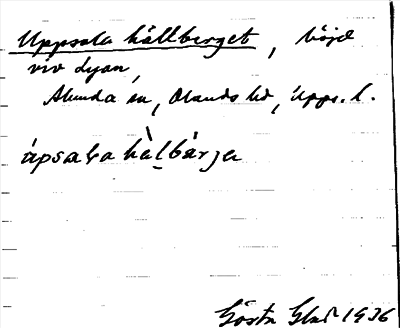 Uppsala hällberget, höjd
vid Lyan,
Alunda sn, Olands hd, Upps. l.
úpsala hä̀l̠bärjə
Gösta Glad 1936